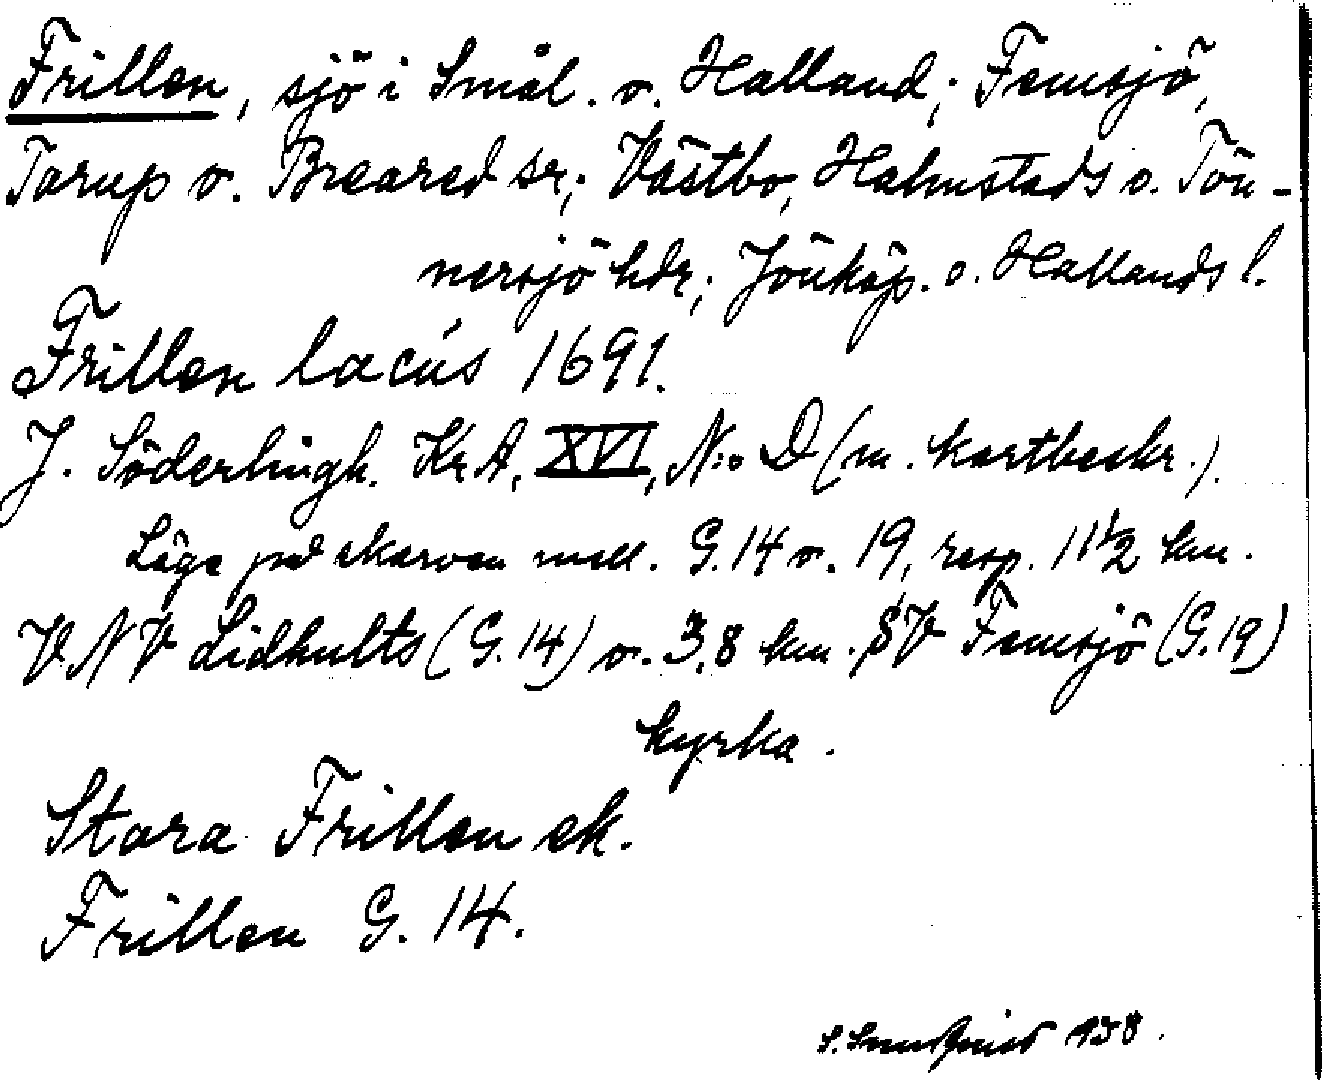 Frillen, sjö i Smål. o. Halland; Femsjö,
Torup o. Breared sr; Västbo, Halmstads o. Tön-
nersjö hdr; Jönköp. o. Hallands l.
Frillen lacus 1691.
J. Söderlingh. Kr.A, XVI, N:o D (m. kartbeskr.).
Läge på skarven mell. G.14 o. 19, resp. 11 1/2 km.
V.NV Lidhults (G.14) o. 3,8 km. SV Femsjö (G.19)
kyrka.
Stora Frillen ek.
Frillen G. 14.